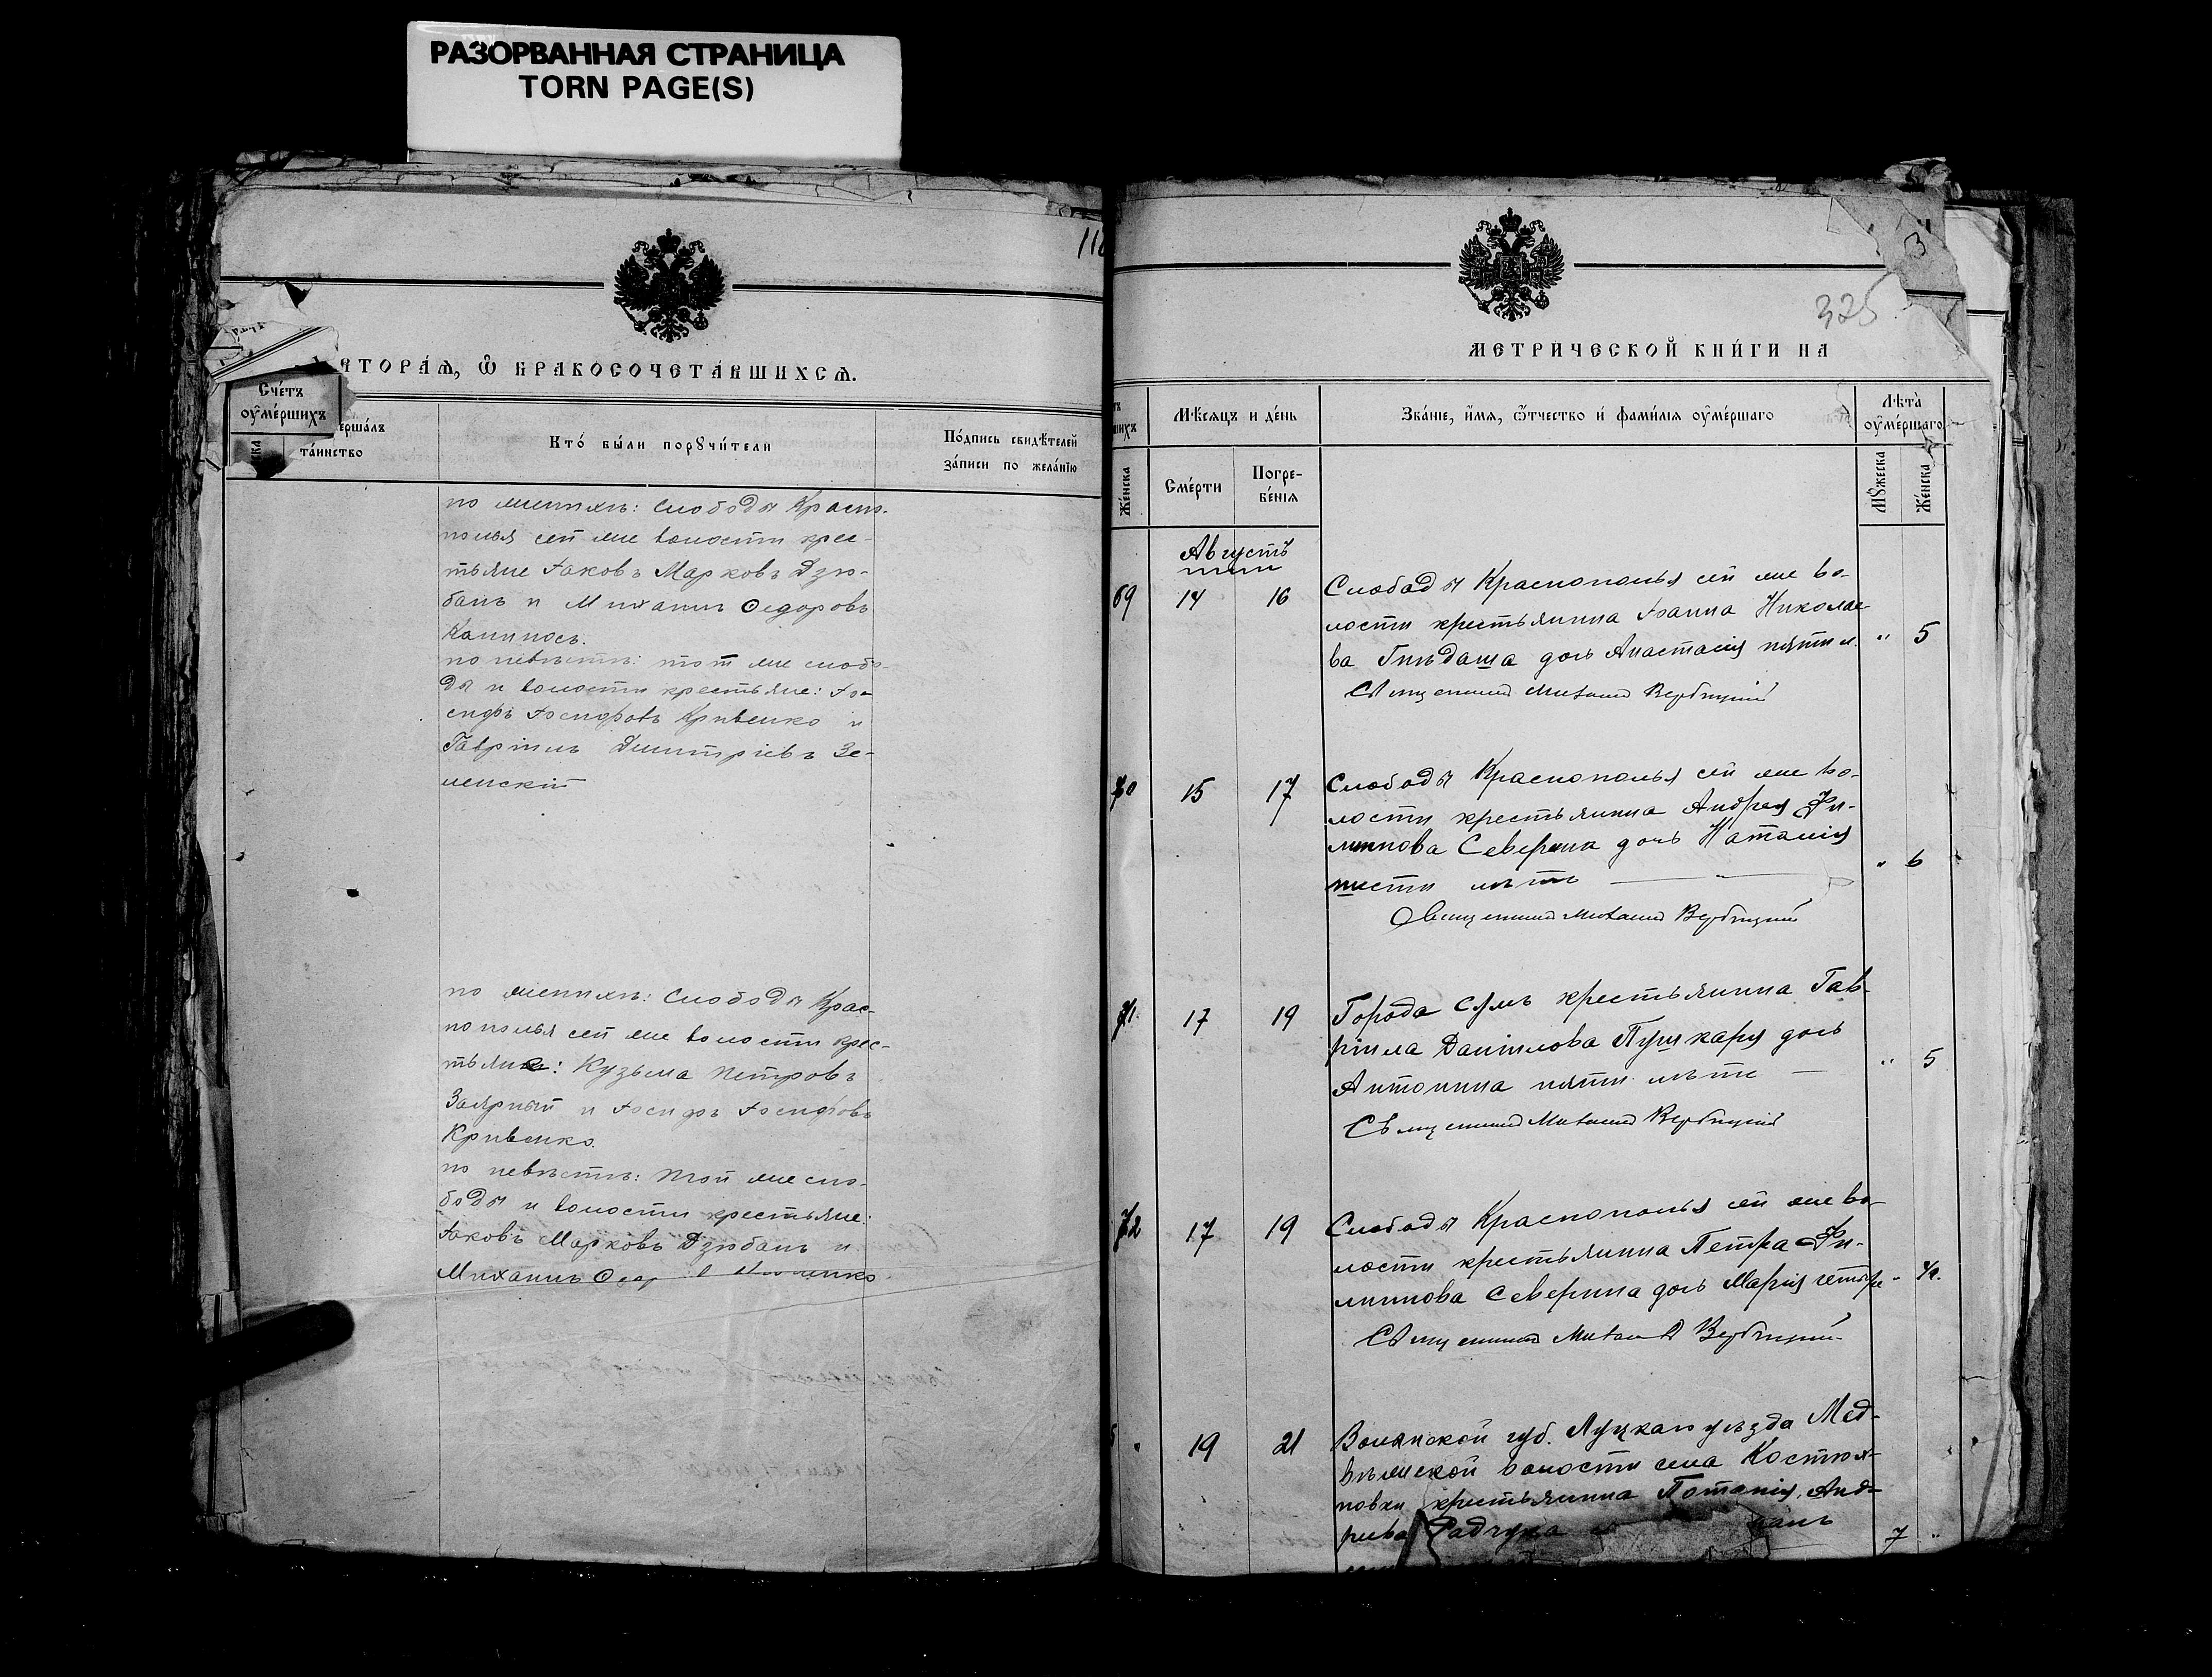 РАЗОРВАННАЯ СТРАНИЦА
TORN PAGE(S)
ВТОРАѦ, Ѽ БРАКОСОЧЕТАВШИХСѦ.
Счетъ
оумершихъ
таинство
Кто были порꙋчители
Подпись свидѣтелей
записи по желанію
по женихѣ: слободы Красно-
полья сей же волости крес-
тьяне Іаковъ Марковъ Дзю-
банъ и Михаилъ Ѳедоровъ
по невѣстѣ: той же слобо-
ды и волости крестьяне: Іо-
сифъ Іосифовъ Кривенко и
Гавріилъ Димитріевъ Зе-
ленскій
по женихѣ: слободы Крас-
нополья сей же волости крес-
тьяне: Кузьма Петровъ
Заярный и Іосифъ Іосифовъ
Кривенко.
по невѣстѣ: той же сло-
боды и волости крестьяне:
Іаковъ Марковъ Дзюбанъ и
Михаилъ
3
325
МЕТРИЧЕСКОЙ КНИГИ НА
Мѣсяцъ и день
Званіе, имя, ѿчество и фамилія оумершаго
Лѣта
оумершаго
Женска
Смерти
Погре-
бенія
Мꙋжеска
Женска
Августъ
69 14 16 Слободы Краснополья сей же во-
лости крестьянина Іоанна Николае-
ва Гнѣдаша дочь Анастасія пяти л. " 5
Священникъ Михаилъ Вербицкій
70 15 17 Слободы Краснополья сей же во-
лости крестьянина Андрея Фи-
липпова Северина дочь Наталія
шести лѣтъ " 6
Священникъ Михаилъ Вербицкій
71 17 19 Города Сумъ крестьянина Гав-
ріила Даніилова Пушкаря дочь
Антонина пяти лѣтъ " 5
Священникъ Михаилъ Вербицкій
72 17 19 Слободы Краснополья сей же во-
лости крестьянина Петра Фи-
липпова Северина дочь Марія четыре
Священникъ Михаилъ Вербицкій
" 19 21 Волынской губ. Луцкаго уѣзда Мед-
вѣжской волости села Костюх-
новки крестьянина Потапія Анд-
реева Радчука 7 "